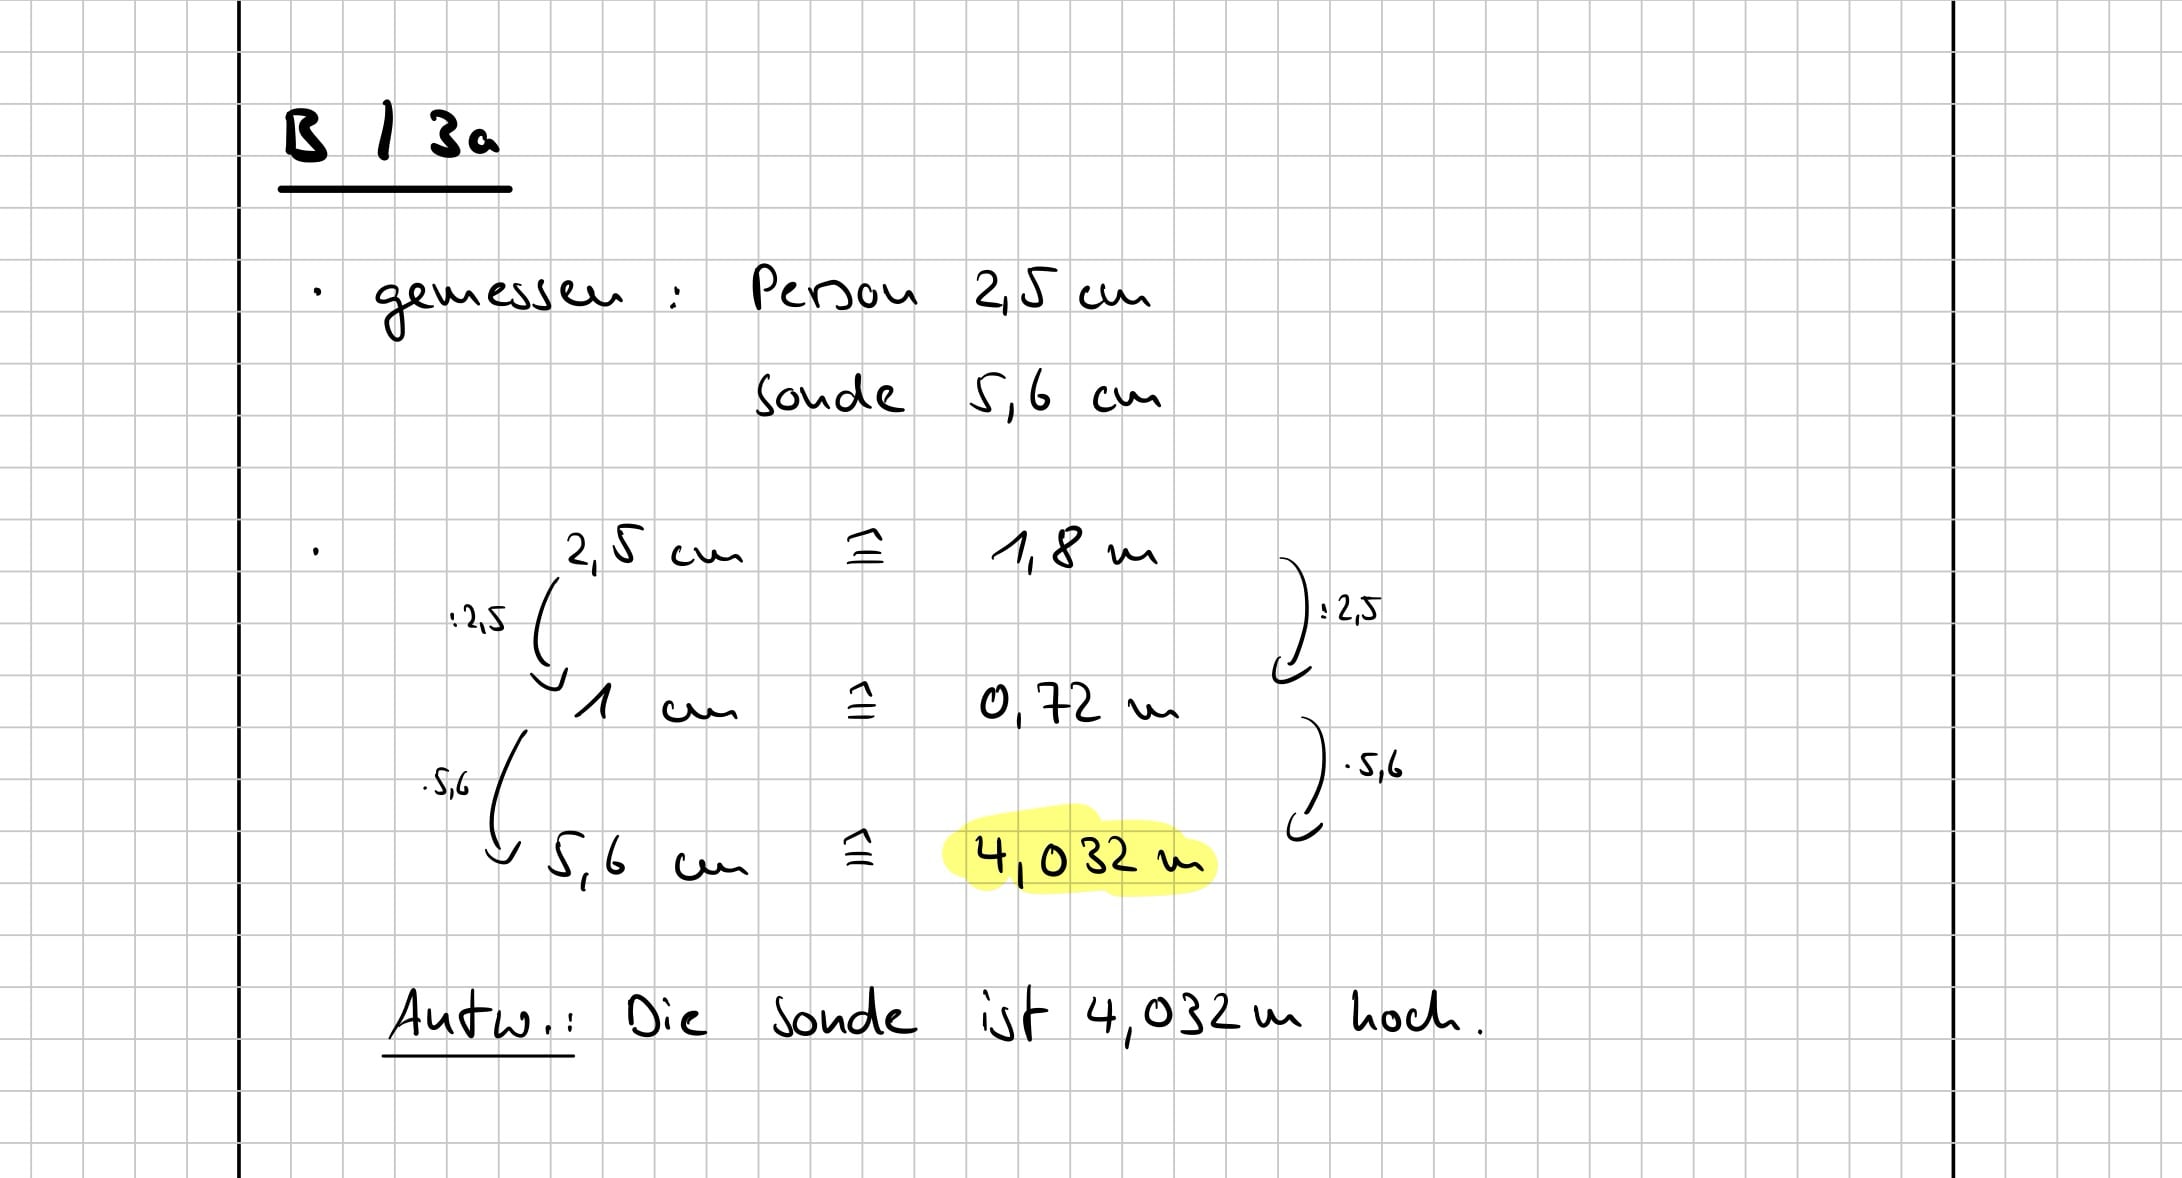 B / 3a
· gemessen : Person 2,5 cm
Sonde 5,6 cm
· 2,5 cm ≙ 1,8 m
:2,5 :2,5
1 cm ≙ 0,72 m
·5,6 ·5,6
5,6 cm ≙ 4,032 m
Antw.: Die Sonde ist 4,032 m hoch.